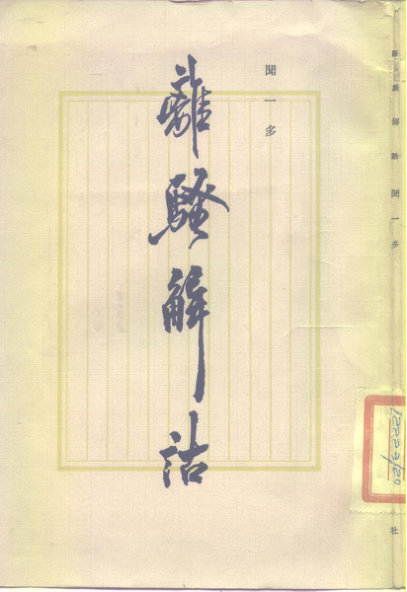 聞一多
離騷解詁
離騷解詁 聞一多
社